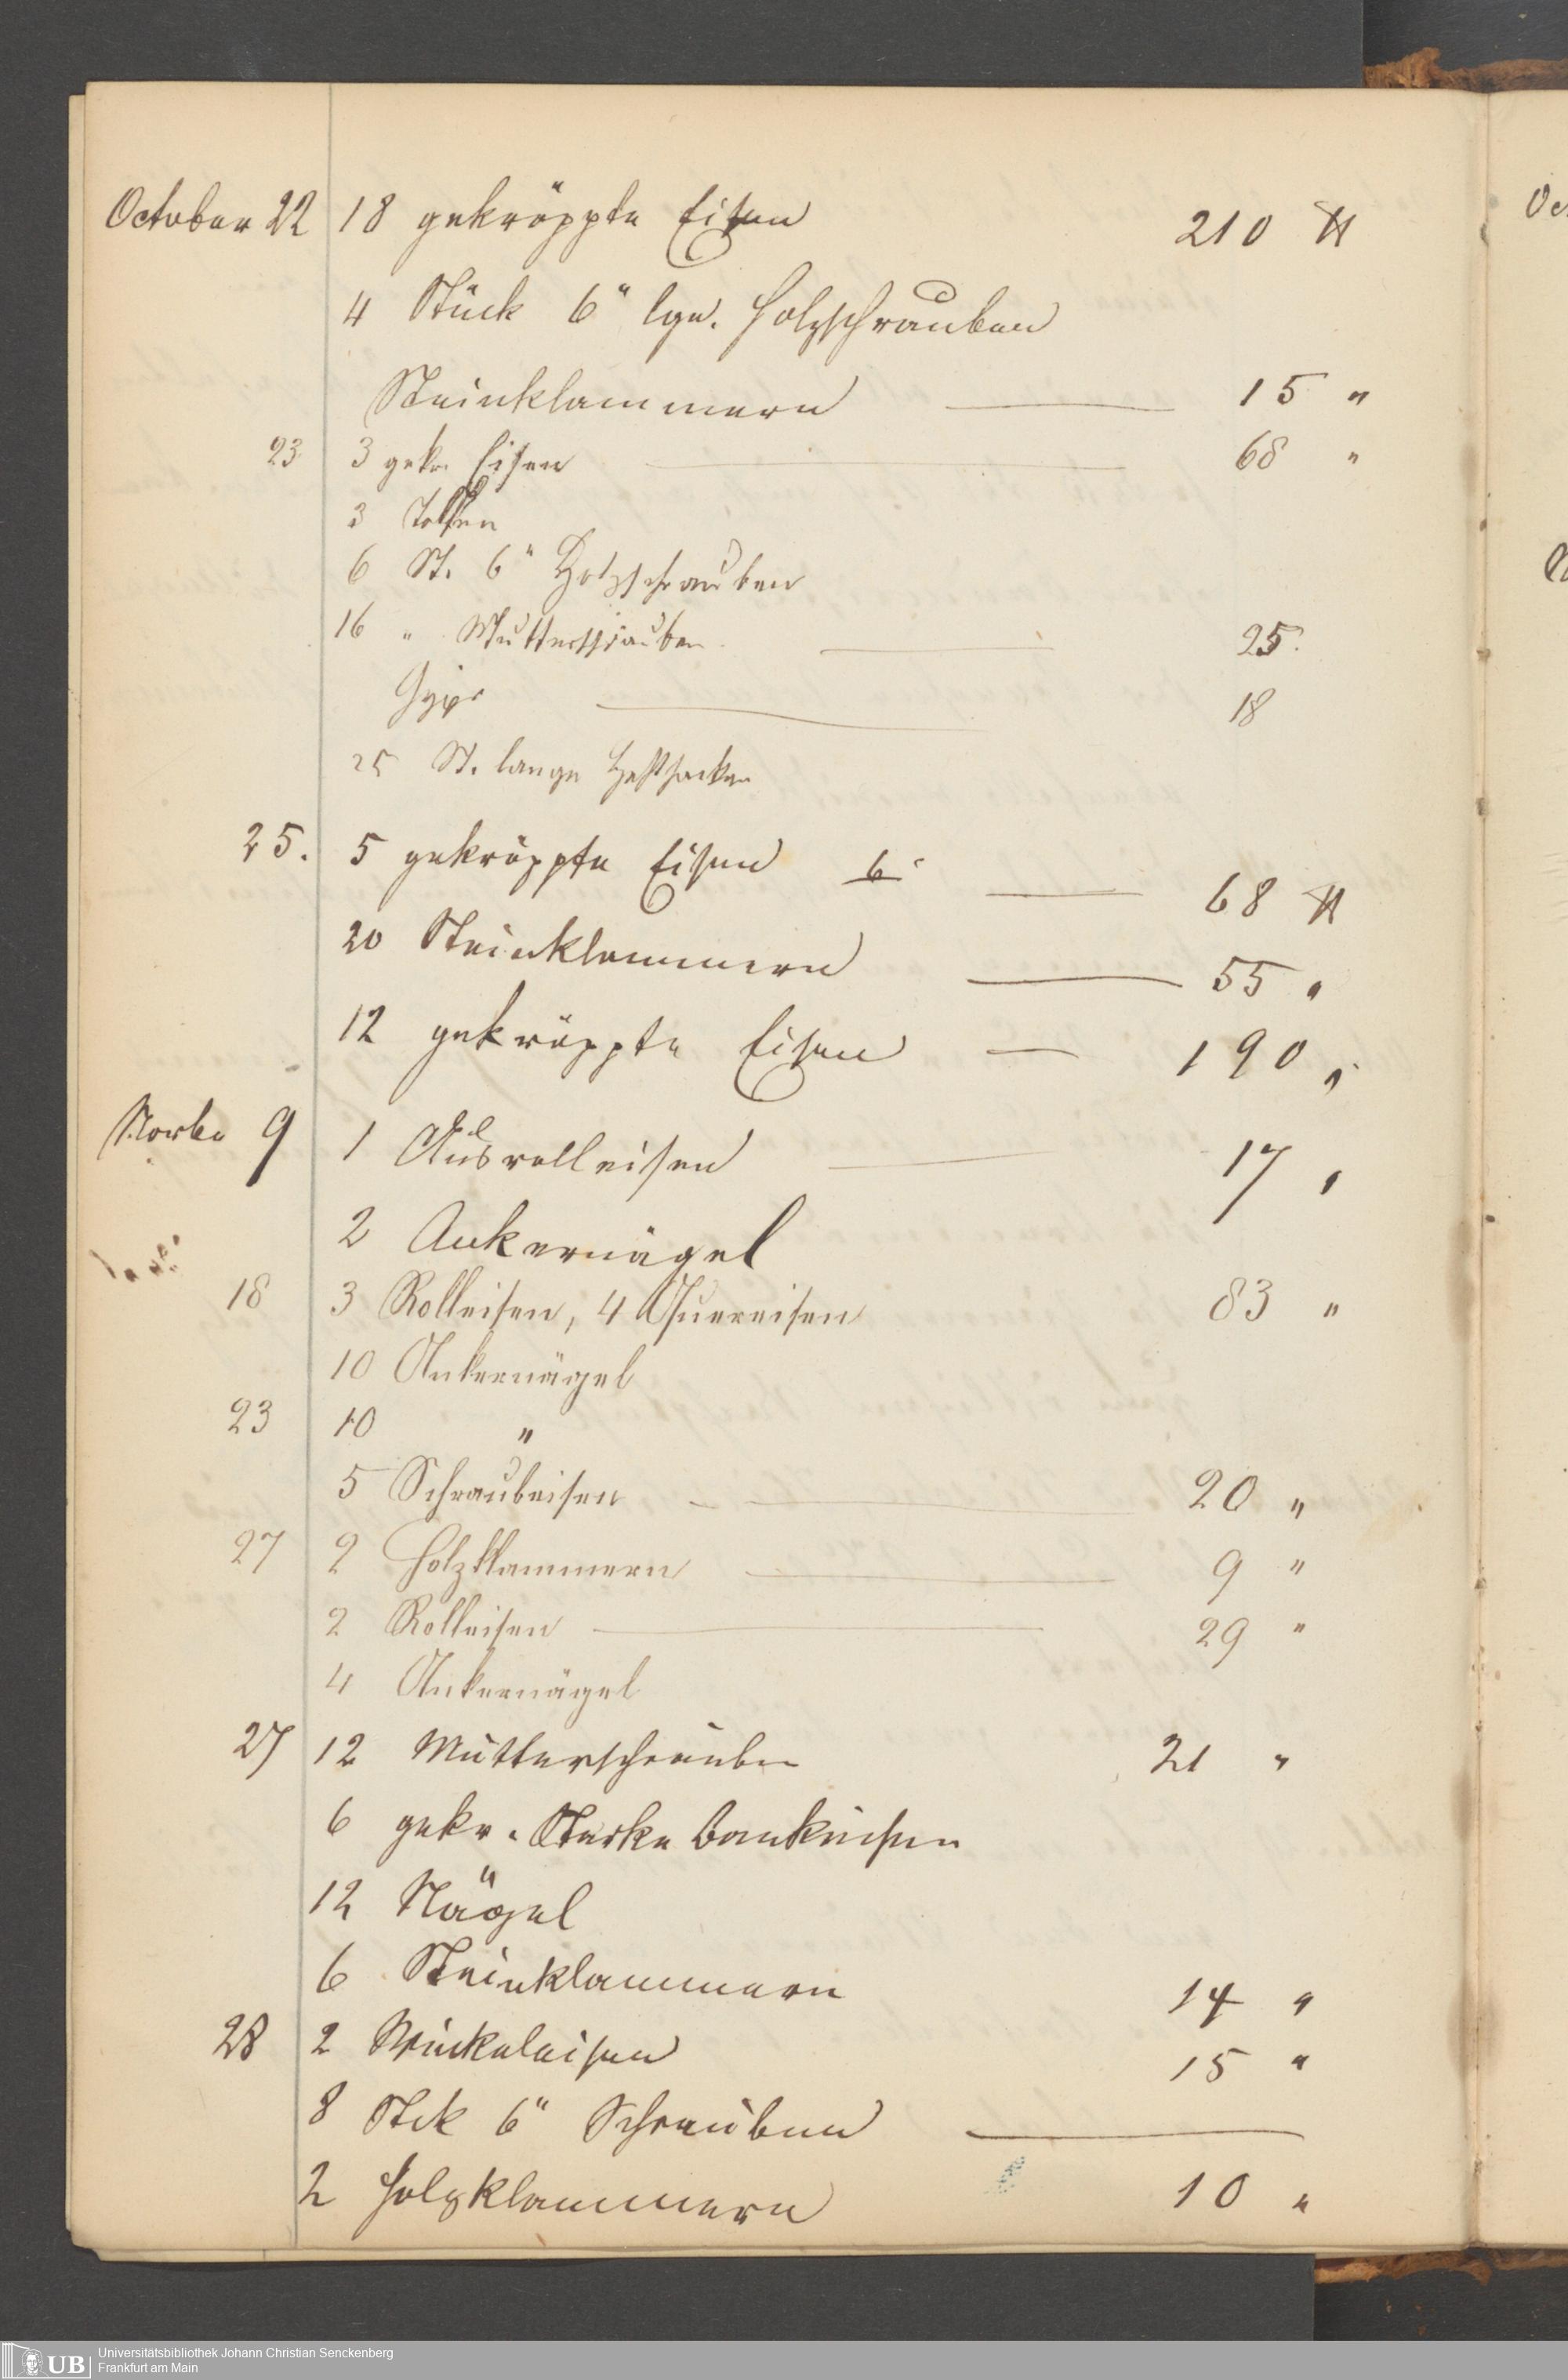 October 22 18 gekröppte Eisen 210 ℔
4 Stück 6" lge. Holzschrauben
Steinklammern — 15 "
23 3 gekr. Eisen — 68 "
3
6 St. 6" Holzschrauben
16 " Mutterschrauben — 25.
Gyps — 18
25 St. lange
25. 5 gekröppte Eisen 6 — 68 ℔
20 Steinklammern — 55 "
12 gekröppte Eisen — 190 "
Novbr 9 1 Ausrolleisen — 17 "
2 Ankernägel
18 3 Rolleisen, 4 Quereisen 83 "
10 Ankernägel
23 10 "
5 Schraubeisen — 20 "
27 2 Holzklammern — 9 "
2 Rolleisen — 29 "
4 Ankernägel
27 12 Mutterschrauben 21 "
6 gekr. Starke Bankeisen
12 Nägel
6 Steinklammern 14 "
28 2 Winkeleisen 15 "
8 Stck 6" Schrauben —
2 Holzklammern 10 "
Oc
UB
Universitätsbibliothek Johann Christian Senckenberg
Frankfurt am Main